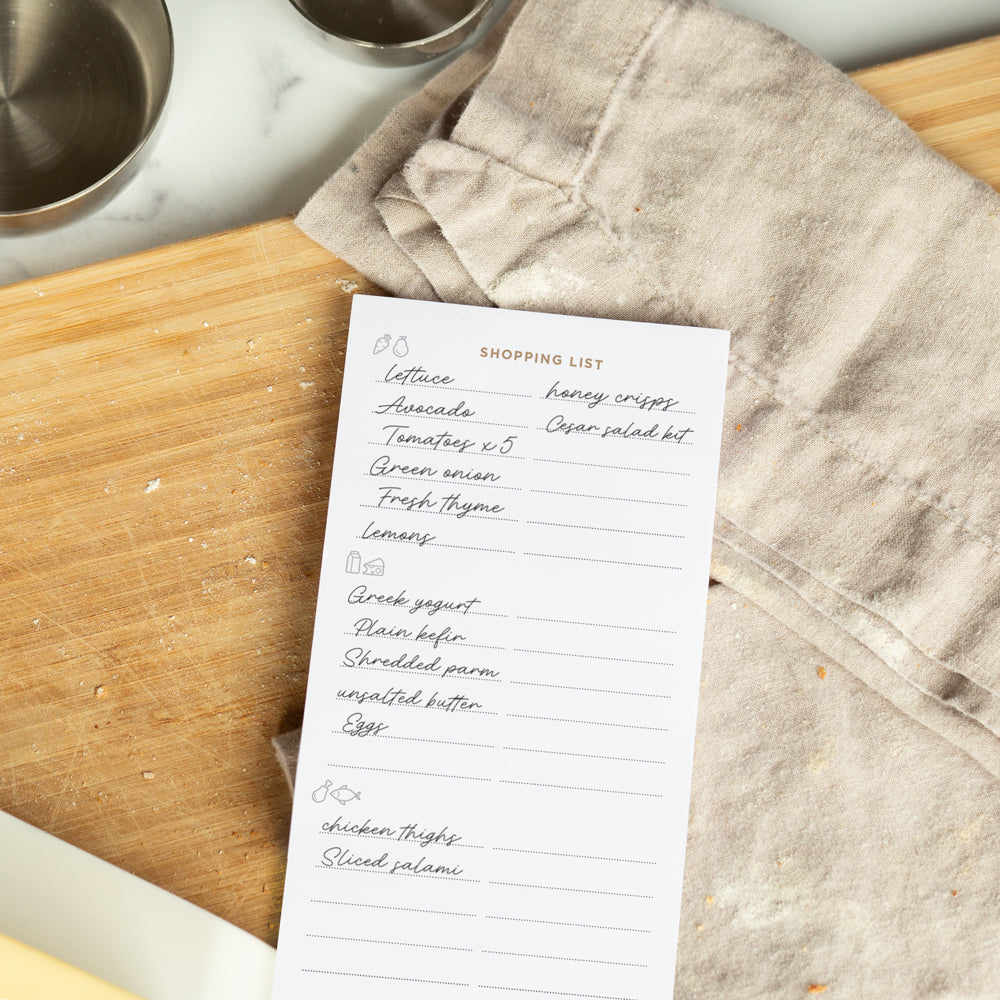 SHOPPING LIST
lettuce
Avocado
Tomatoes x 5
Green onion
Fresh thyme
lemons
honey crisps
Cesar salad kit
Greek yogurt
Plain kefir
Shredded parm
unsalted butter
Eggs
chicken thighs
Sliced salami